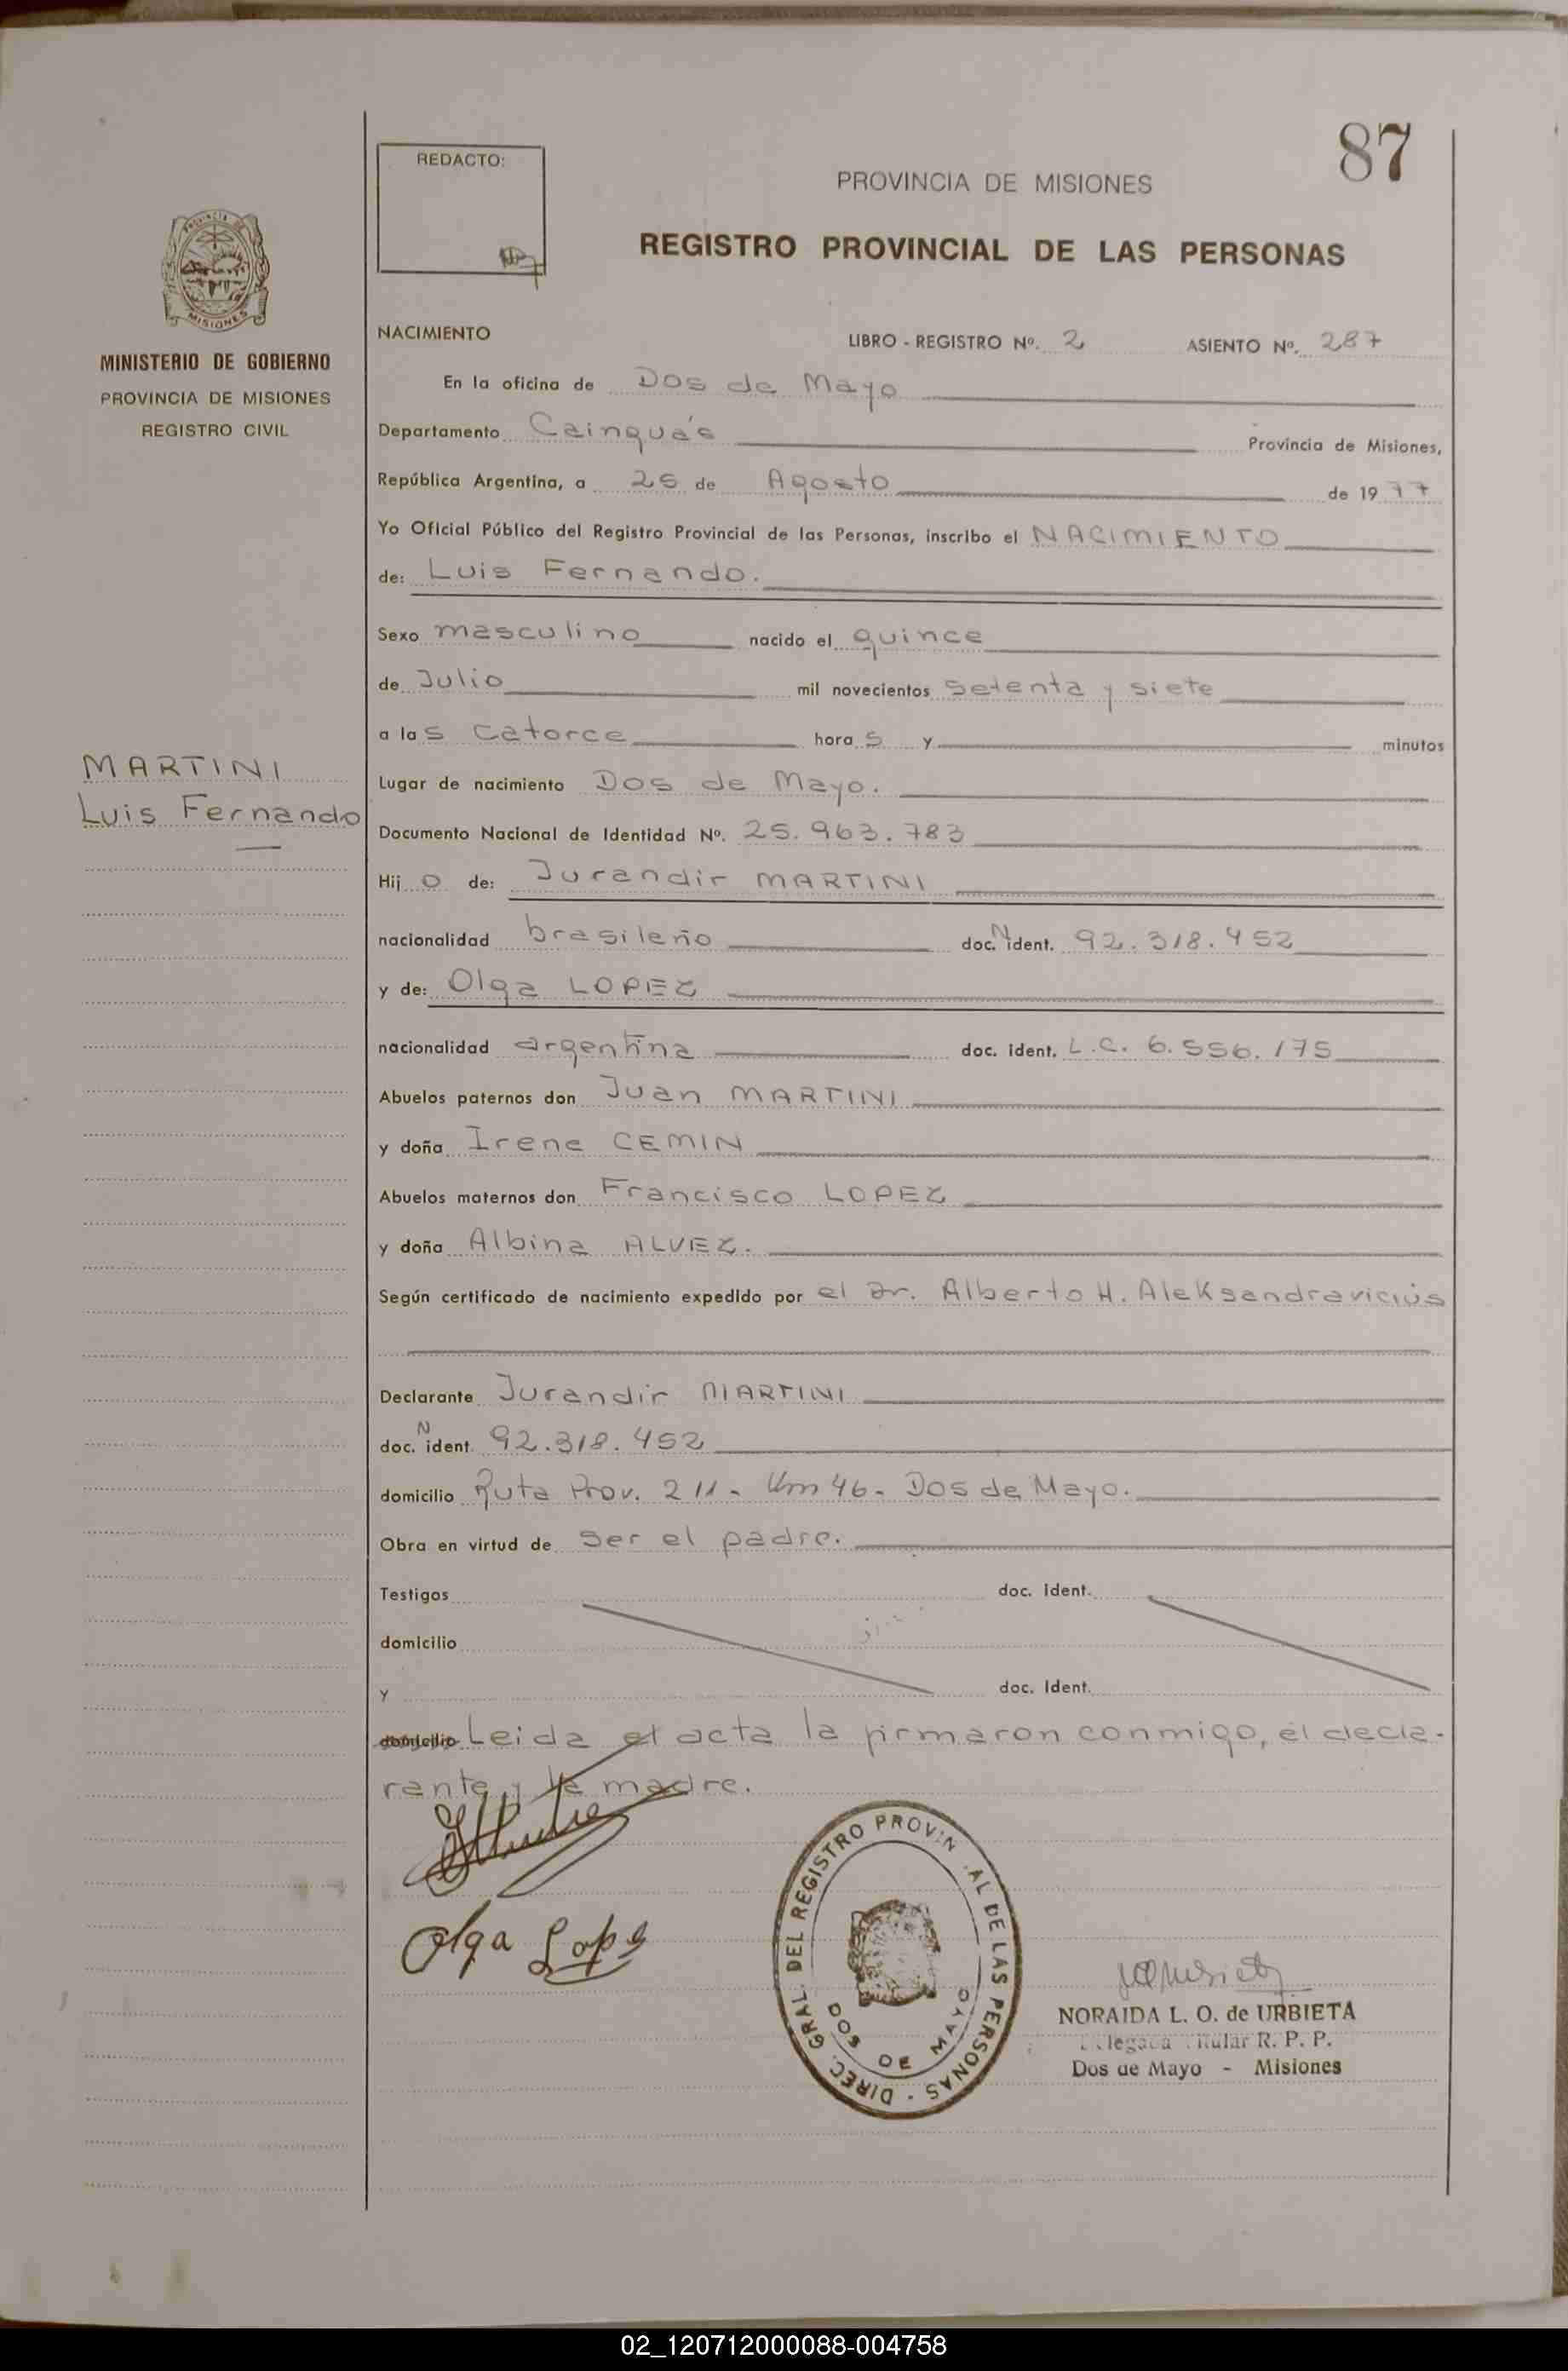 87
REDACTO:
PROVINCIA DE MISIONES
REGISTRO PROVINCIAL DE LAS PERSONAS
PROVINCIA DE MISIONES
MINISTERIO DE GOBIERNO
PROVINCIA DE MISIONES
REGISTRO CIVIL
MARTINI
Luis Fernando
NACIMIENTO LIBRO - REGISTRO Nº. 2 ASIENTO Nº. 287
En la oficina de Dos de Mayo
Departamento Cainguás Provincia de Misiones,
República Argentina, a 25 de Agosto de 1977
Yo Oficial Público del Registro Provincial de las Personas, inscribo el NACIMIENTO
de: Luis Fernando.
Sexo masculino nacido el quince
de Julio mil novecientos setenta y siete
a las catorce horas y minutos
Lugar de nacimiento Dos de Mayo.
Documento Nacional de Identidad Nº. 25.963.783
Hijo de: Jurandir MARTINI
nacionalidad brasileño doc. N ident. 92.318.452
y de: Olga LOPEZ
nacionalidad argentina doc. ident. L.C. 6.556.175
Abuelos paternos don Juan MARTINI
y doña Irene CEMIN
Abuelos maternos don Francisco LOPEZ
y doña Albina ALVEZ.
Según certificado de nacimiento expedido por el Dr. Alberto H. Aleksandravicius
Declarante Jurandir MARTINI
doc. N ident. 92.318.452
domicilio Ruta Prov. 211 - Km 46 - Dos de Mayo.
Obra en virtud de ser el padre.
Testigos doc. ident.
domicilio
y doc. ident.
domicilio Leida el acta la firmaron conmigo, el decla-
rante y la madre.
Olga Lopez
DIREC. GRAL. DEL REGISTRO PROVIN AL DE LAS PERSONAS -
DOS DE MAYO
NORAIDA L. O. de URBIETA
Titular R. P. P.
Dos de Mayo - Misiones
02_120712000088-004758